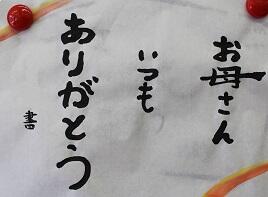 お母さん
いつも
ありがとう
書